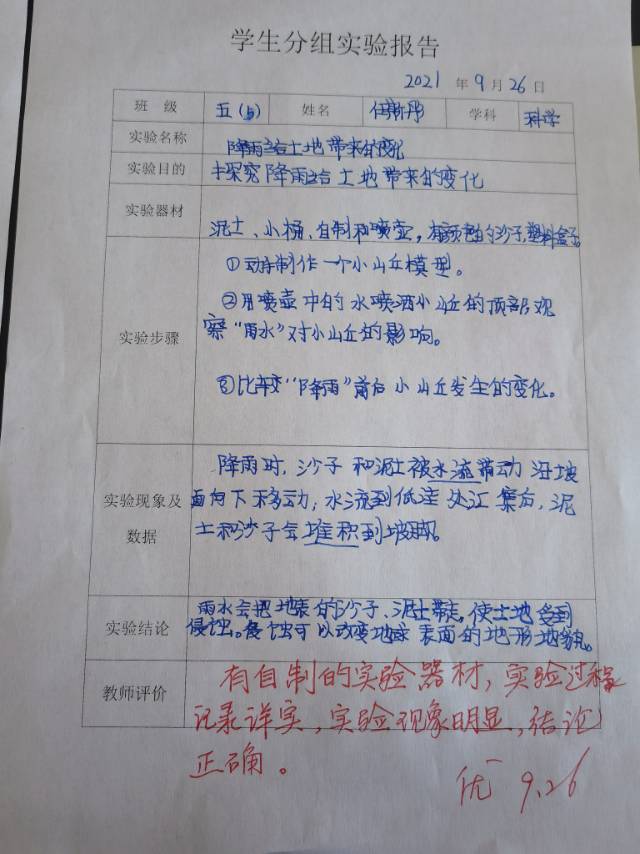 学生分组实验报告
2021 年 9 月 26 日
班 级 五(5) 姓名 学科 科学
实验名称 降雨会给土地带来的变化
实验目的 探究降雨会给土地带来的变化
实验器材
泥土、小桶、自制的喷壶,有颜色的沙子,塑料盒子。
①动手制作一个小山丘模型。
②用喷壶中的水喷洒小山丘的顶部观
察“雨水”对小山丘的影响。
实验步骤
③比较“降雨”前后小山丘发生的变化。
降雨时,沙子和泥土被水流带动沿坡
实验现象及 面向下移动;水流到低洼处汇集后,泥
数据 土和沙子会堆积到坡脚。
雨水会把地表的沙子、泥土带走,使土地受到
实验结论 侵蚀。侵蚀可以改变地球表面的地形地貌。
教师评价 有自制的实验器材,实验过程
记录详实,实验现象明显,结论
正确。
优 9.26